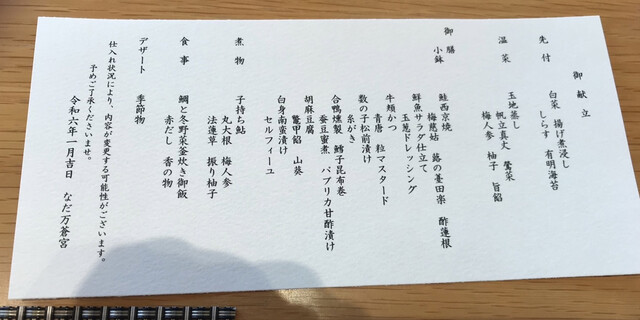 御献立
先付
白菜 揚げ煮浸し
しらす 有明海苔
温菜
玉地蒸し
帆立真丈 鶯菜
梅人参 柚子 旨餡
御膳
小鉢
鮭西京焼
梅慈姑 蕗の薹田楽 酢蓮根
鮮魚サラダ仕立て
玉葱ドレッシング
牛頬かつ
青唐 粒マスタード
数の子松前漬け
糸がき
合鴨燻製 鱈子昆布巻
蚕豆蜜煮 パプリカ甘酢漬け
胡麻豆腐
鼈甲餡 山葵
白身南蛮漬け
セルフィーユ
煮物
子持ち鮎
丸大根 梅人参
法蓮草 振り柚子
食事
鯛と冬野菜釜炊き御飯
赤だし 香の物
デザート
季節物
仕入れ状況により、内容が変更する可能性がございます。
予めご了承くださいませ。
令和六年一月吉日 なだ万蒼宮